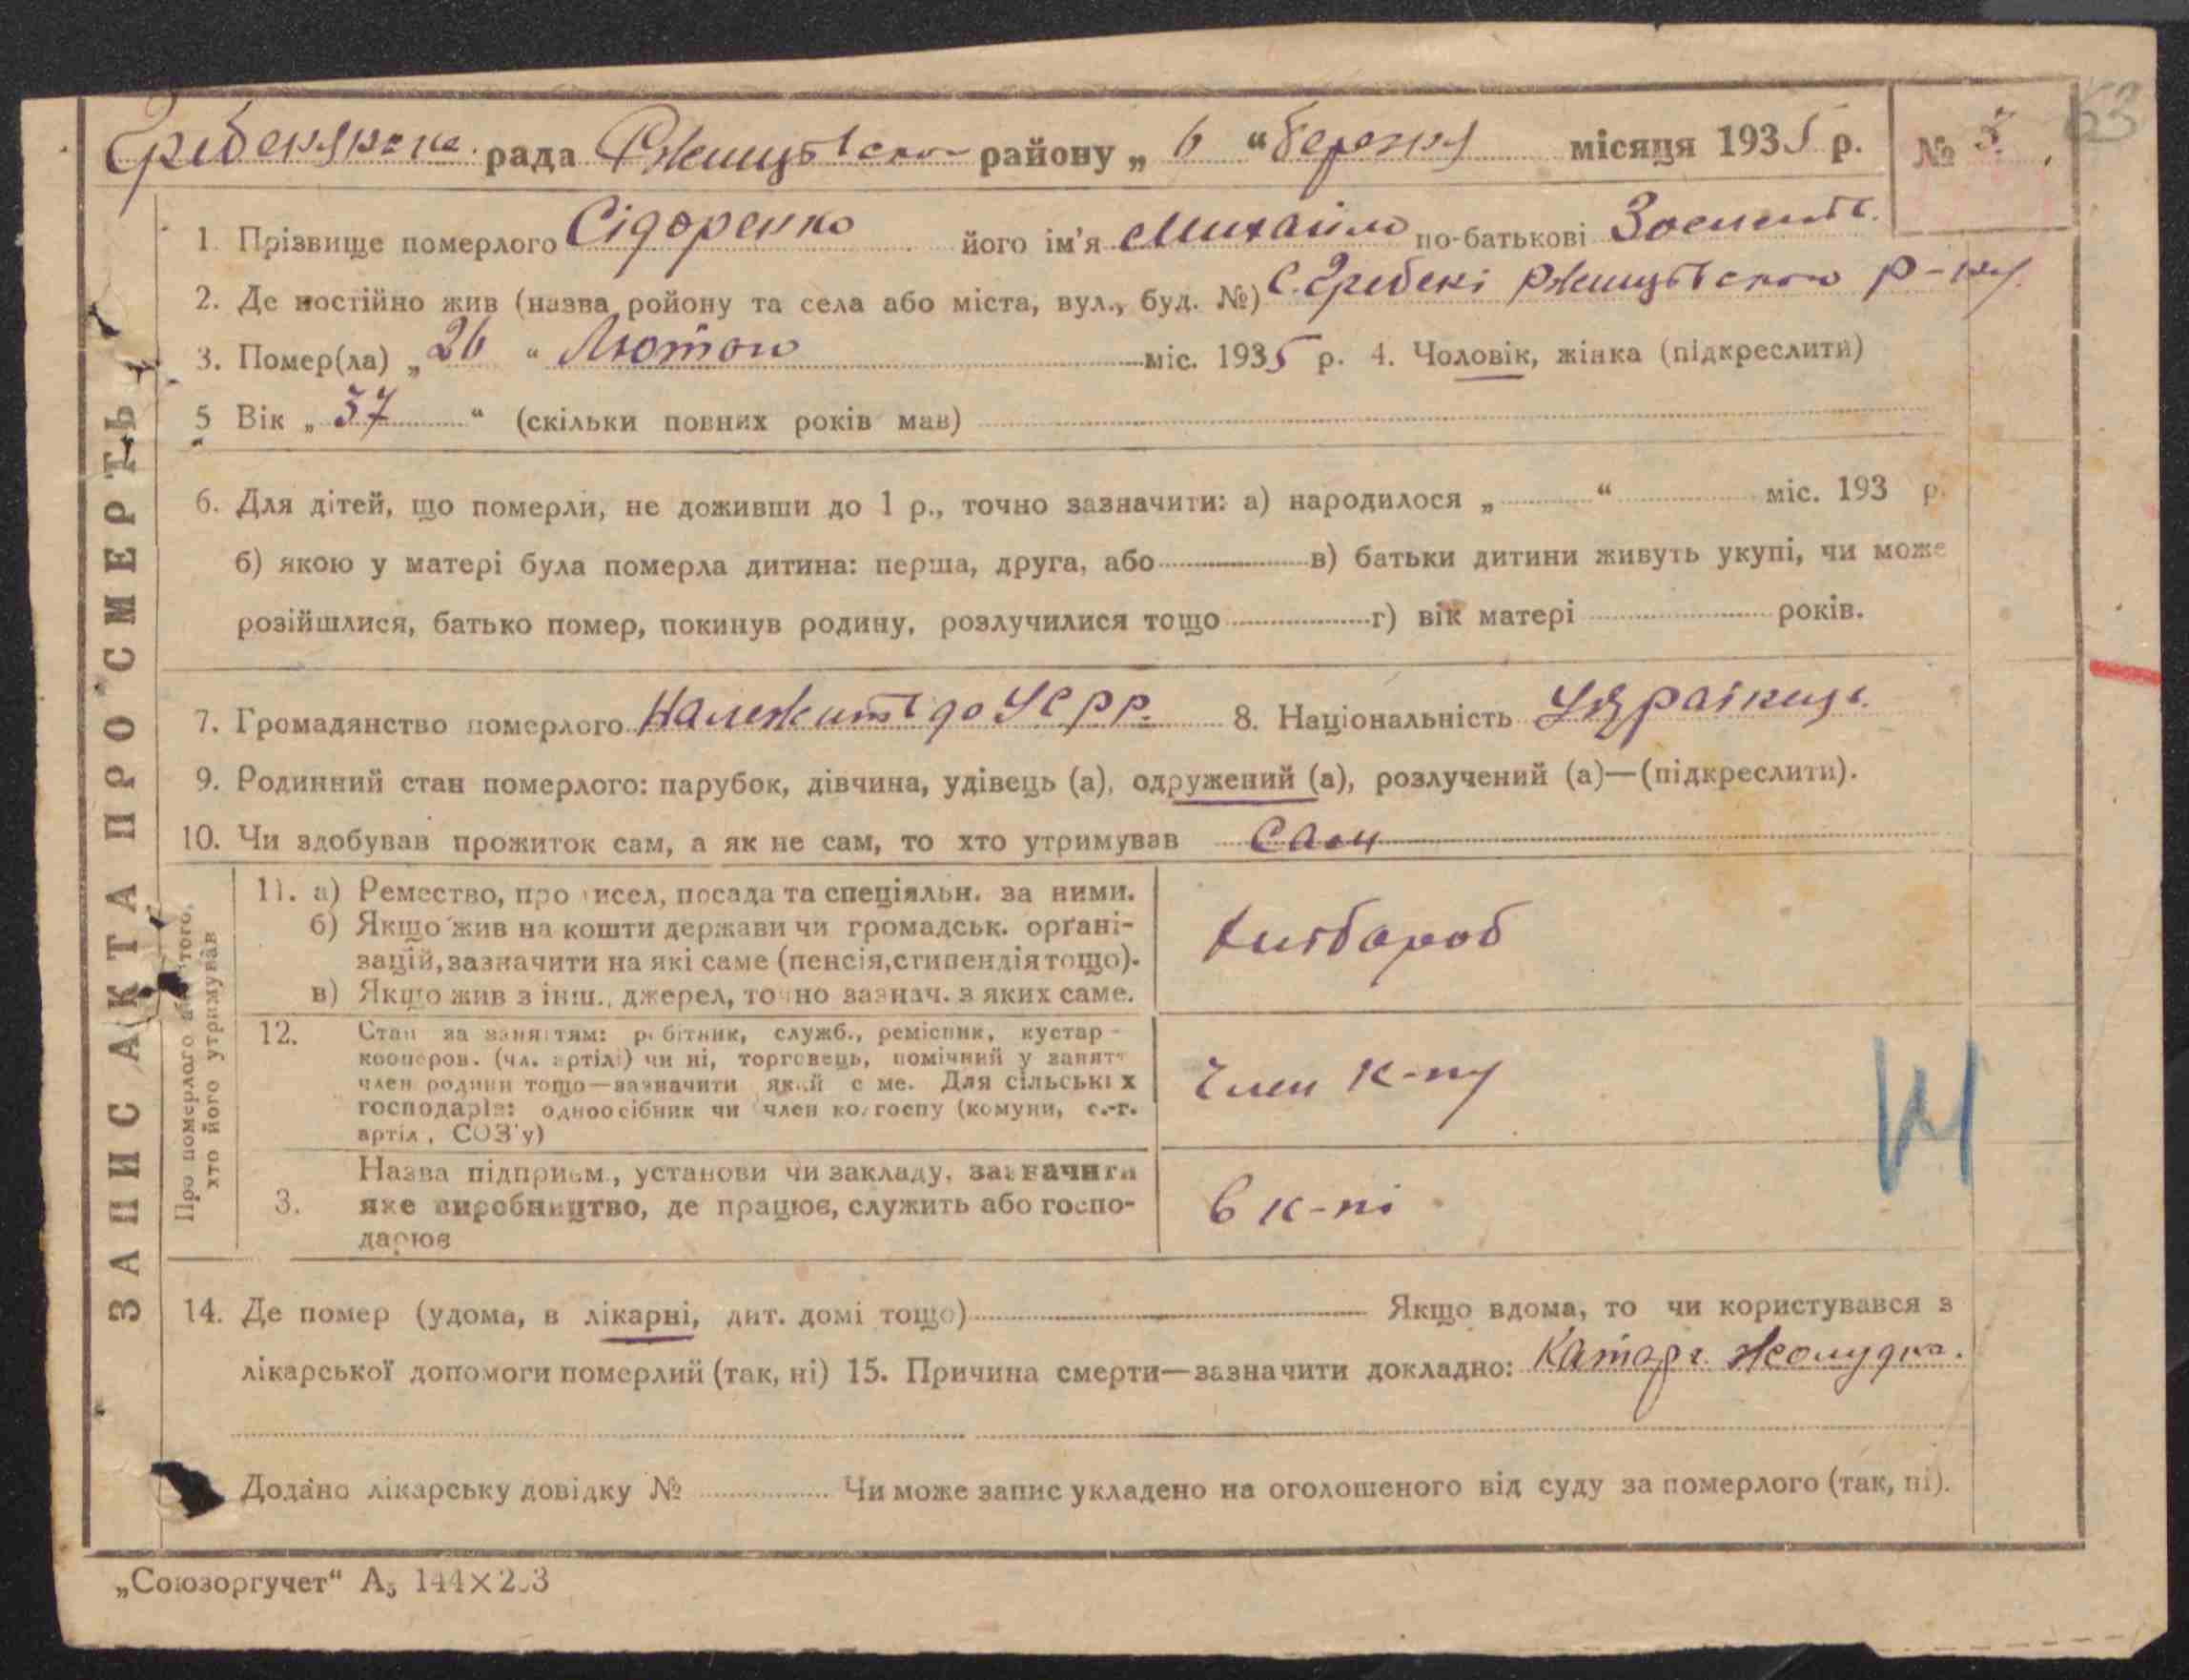 рада району „ 6 “ березня місяця 1935 р. № 3.
63
1 Прізвище померлого Сідоренко його ім'я Михайло по-батькові
2. Де постійно жив (назва ройону та села або міста, вул., буд. №) с. Гребені Ржищівського р-ну
3. Помер(ла) „ 26 “ Лютого міс. 1935 р. 4. Чоловік, жінка (підкреслити)
5 Вік „ 37 “ (скільки повних років мав)
6. Для дітей, що померли, не доживши до 1 р., точно зазначити: а) народилося „ “ міс. 193 р.
б) якою у матері була померла дитина: перша, друга, або в) батьки дитини живуть укупі, чи може
розійшлися, батько помер, покинув родину, розлучилися тощо г) вік матері років.
7. Громадянство померлого Належить до УСРР. 8. Національність Українць.
9. Родинний стан померлого: парубок, дівчина, удівець (а), одружений (а), розлучений (а)—(підкреслити).
10. Чи здобував прожиток сам, а як не сам, то хто утримував Сам
ЗАПИС АКТА ПРО СМЕРТЬ
Про померлого або того,
хто його утримував
11. а) Ремество, промисел, посада та спеціяльн. за ними.
б) Якщо жив на кошти держави чи громадськ. орґані-
зацій, зазначити на які саме (пенсія, стипендія тощо).
в) Якщо жив з інш., джерел, точно зазнач. з яких саме.
хлібороб
12. Стан за заняттям: робітник, служб., ремісник, кустар -
кооперов. (чл. артілі) чи ні, торговець, помічний у занятт
член родини тощо—зазначити який саме. Для сільських
господарів: одноосібник чи член колгоспу (комуни, с.-г.
артіл , СОЗ'у)
Член к-пу
3. Назва підприєм., установи чи закладу, зазначити
яке виробництво, де працює, служить або госпо-
дарює
в к-пі
14. Де помер (удома, в лікарні, дит. домі тощо) Якщо вдома, то чи користувався з
лікарської допомоги померлий (так, ні) 15. Причина смерти—зазначити докладно: Катар. жолудка.
Додано лікарську довідку № Чи може запис укладено на оголошеного від суду за померлого (так, ні).
„Союзоргучет“ А₅ 144×2 3